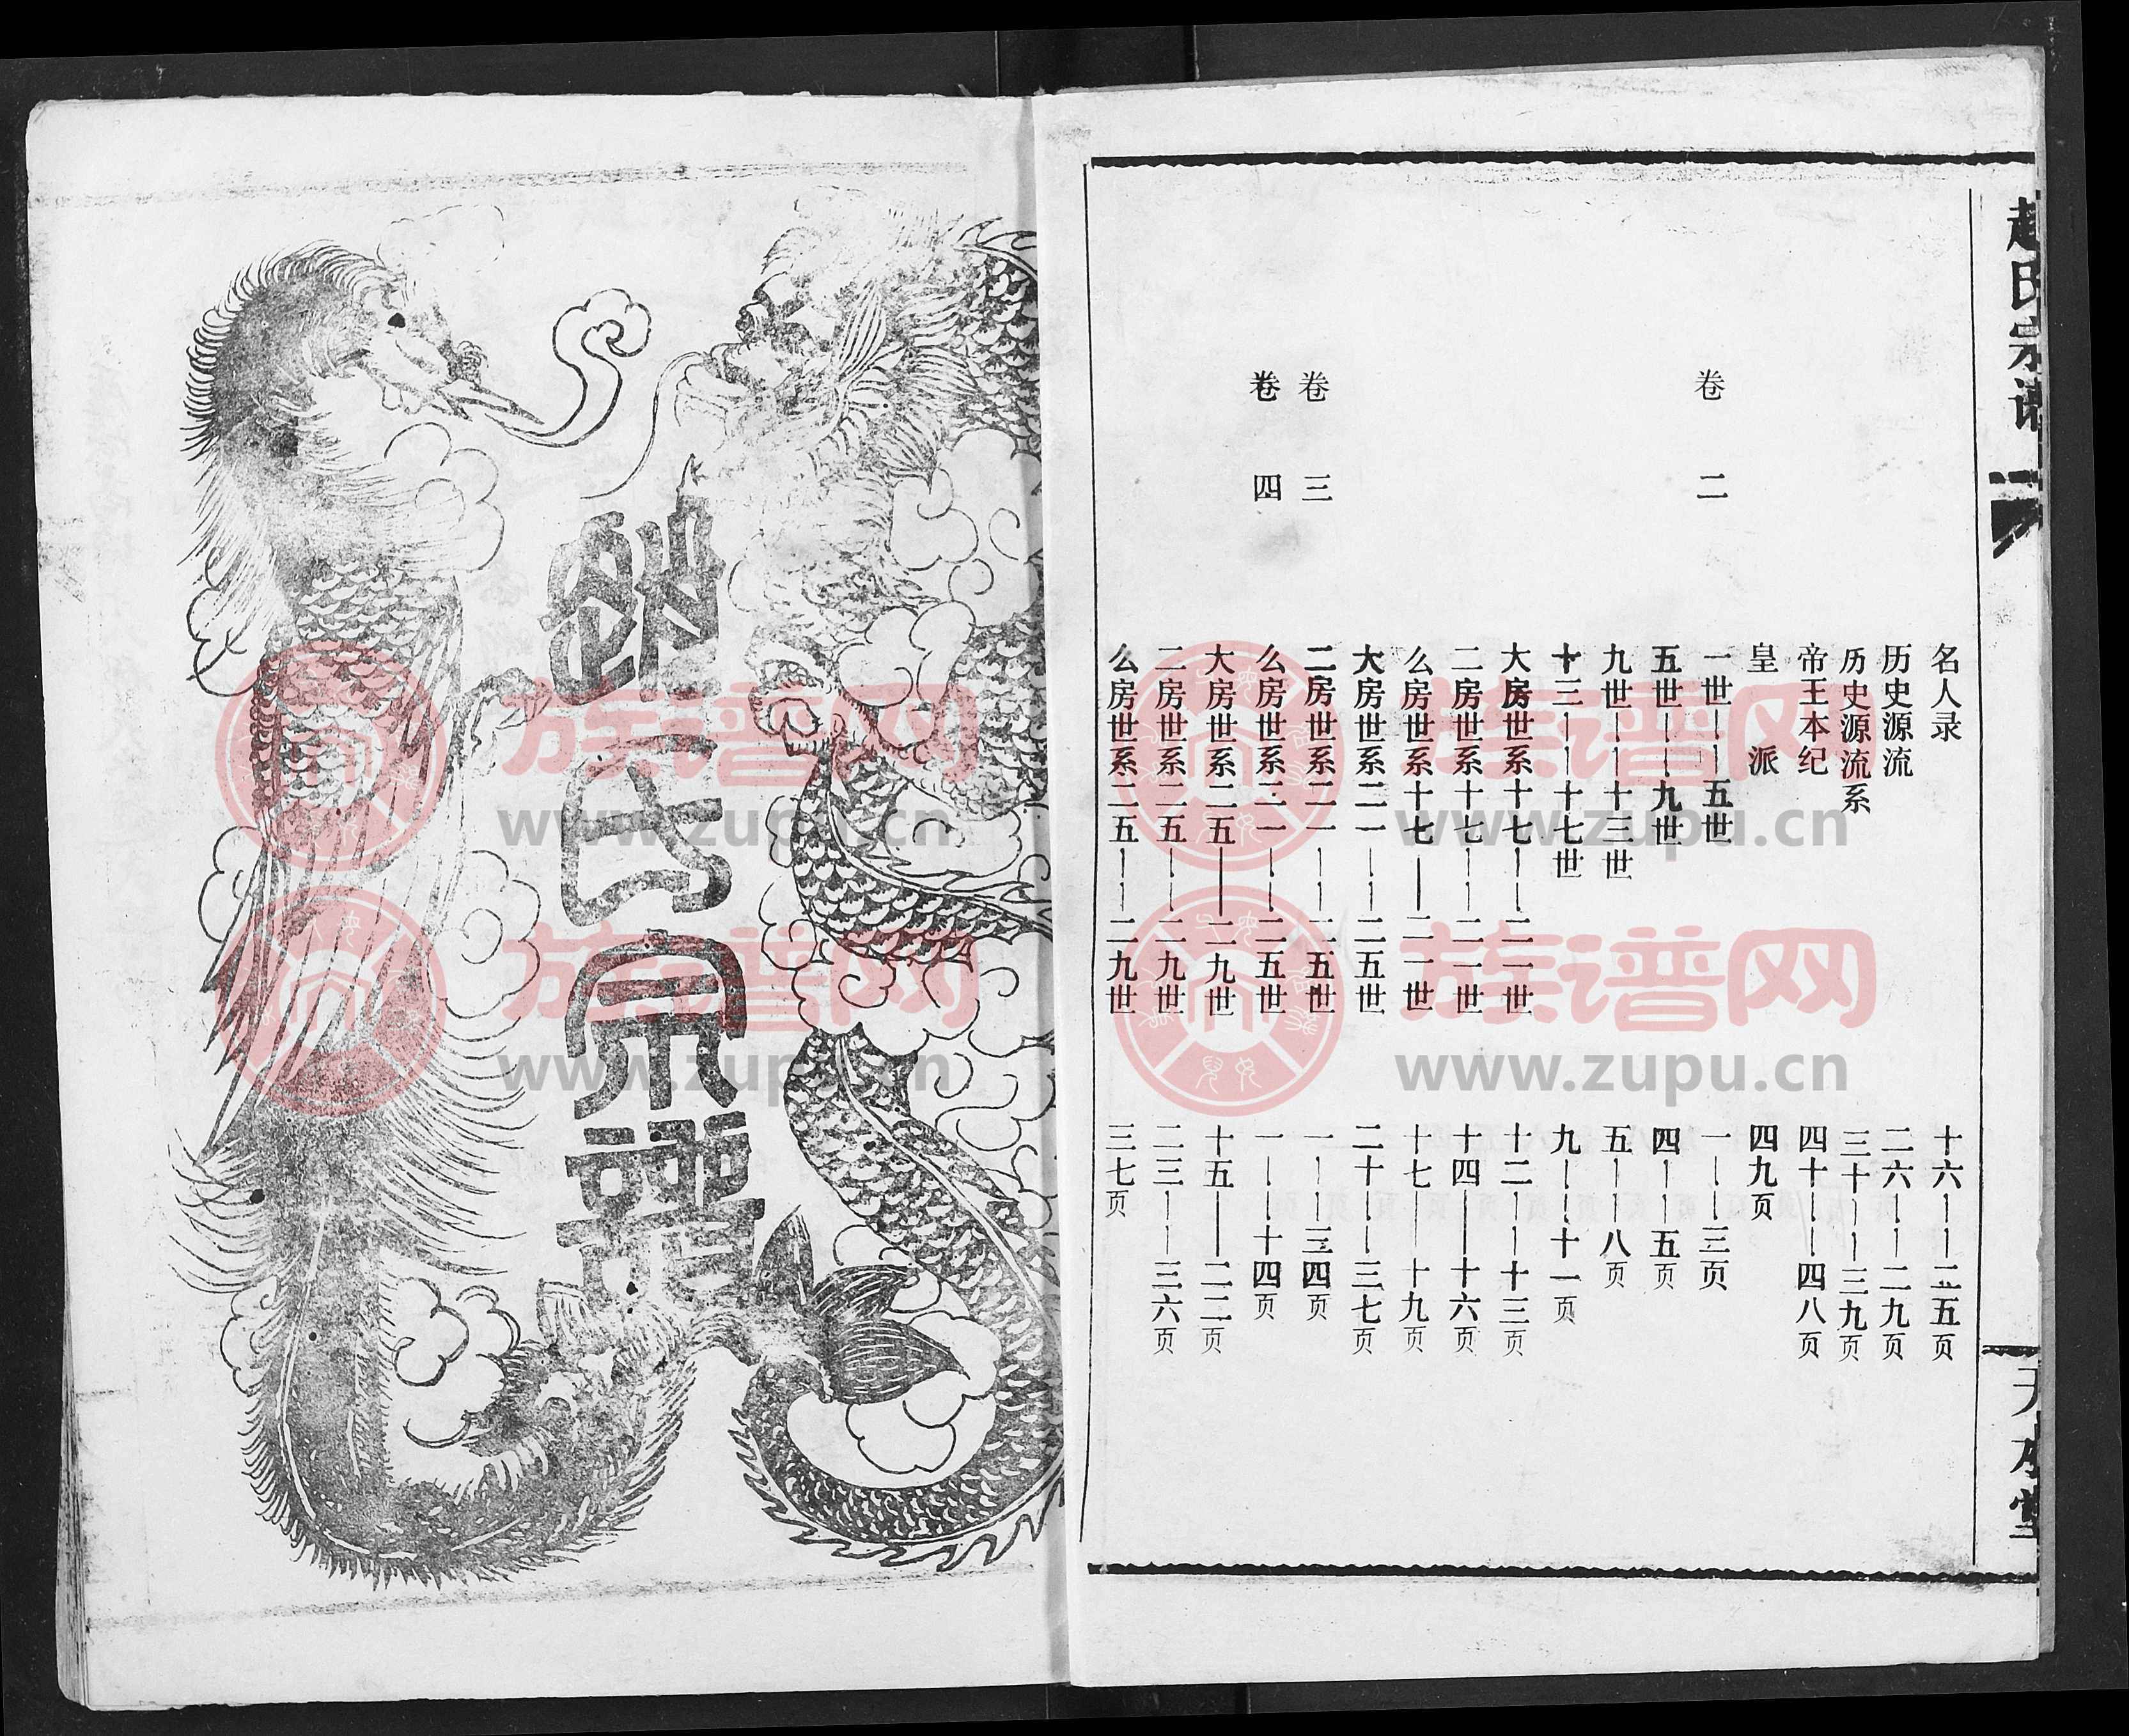 赵氏宗谱
天水堂
名人录 十六——二五页
历史源流 二六——二九页
历史源流系 三十——三九页
帝王本纪 四十——四八页
皇派 四九页
卷二 一世——五世 一——三页
五世——九世 四——五页
九世——十三世 五——八页
十三——十七世 九——十一页
大房世系十七——二一世 十二——十三页
二房世系十七——二一世 十四——十六页
么房世系十七——二一世 十七——十九页
大房世系二一——二五世 二十——三七页
卷三 二房世系二一——二五世 一——三四页
卷四 么房世系二一——二五世 一——十四页
大房世系二五——二九世 十五——二二页
二房世系二五——二九世 二三——三六页
么房世系二五——二九世 三七页
趙氏宗譜
族谱网
www.zupu.cn
族谱网
www.zupu.cn
族谱网
www.zupu.cn
族谱网
www.zupu.cn